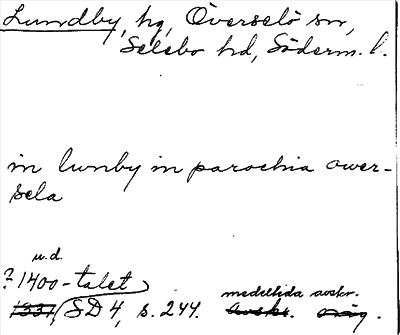 Lundby, hg, Överselö sn,
Selebo hd, Söderm. l.
in lunby in parochia ower-
sela
u.d.
? 1400-talet
1331, SD 4, s. 244. medeltida avskr.
Avskr. orig.